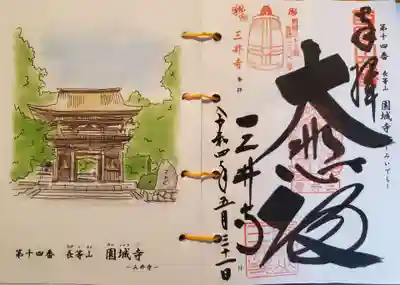 第十四番 長等山 園城寺
〜三井寺〜
第十四番 長等山 園城寺
〜みいでら〜
奉拝
大悲殿
三井寺
三井寺
令和四年五月三十一日